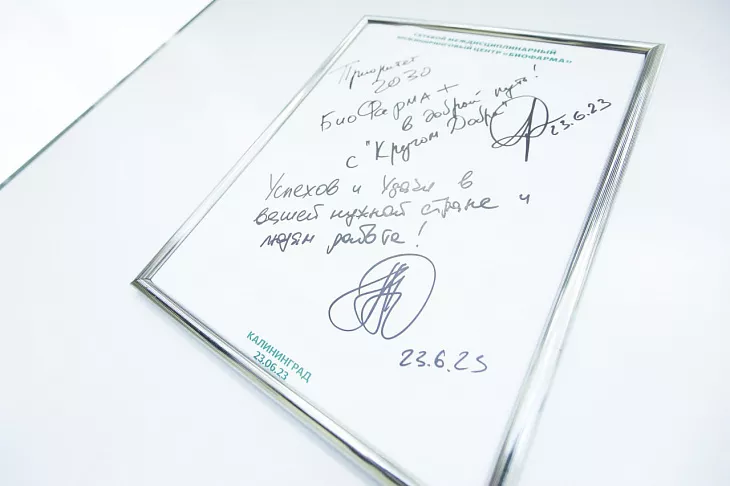 СЕТЕВОЙ МЕЖДИСЦИПЛИНАРНЫЙ
ИНЖИНИРИНГОВЫЙ ЦЕНТР «БИОФАРМА»
Приоритет
2030
БиоФарма +
в добрый путь!
с "Кругом Добра"
23.6.23
Успехов и Удачи в
вашей нужной стране и
людям работе!
23.6.23
КАЛИНИНГРАД
23.06.23